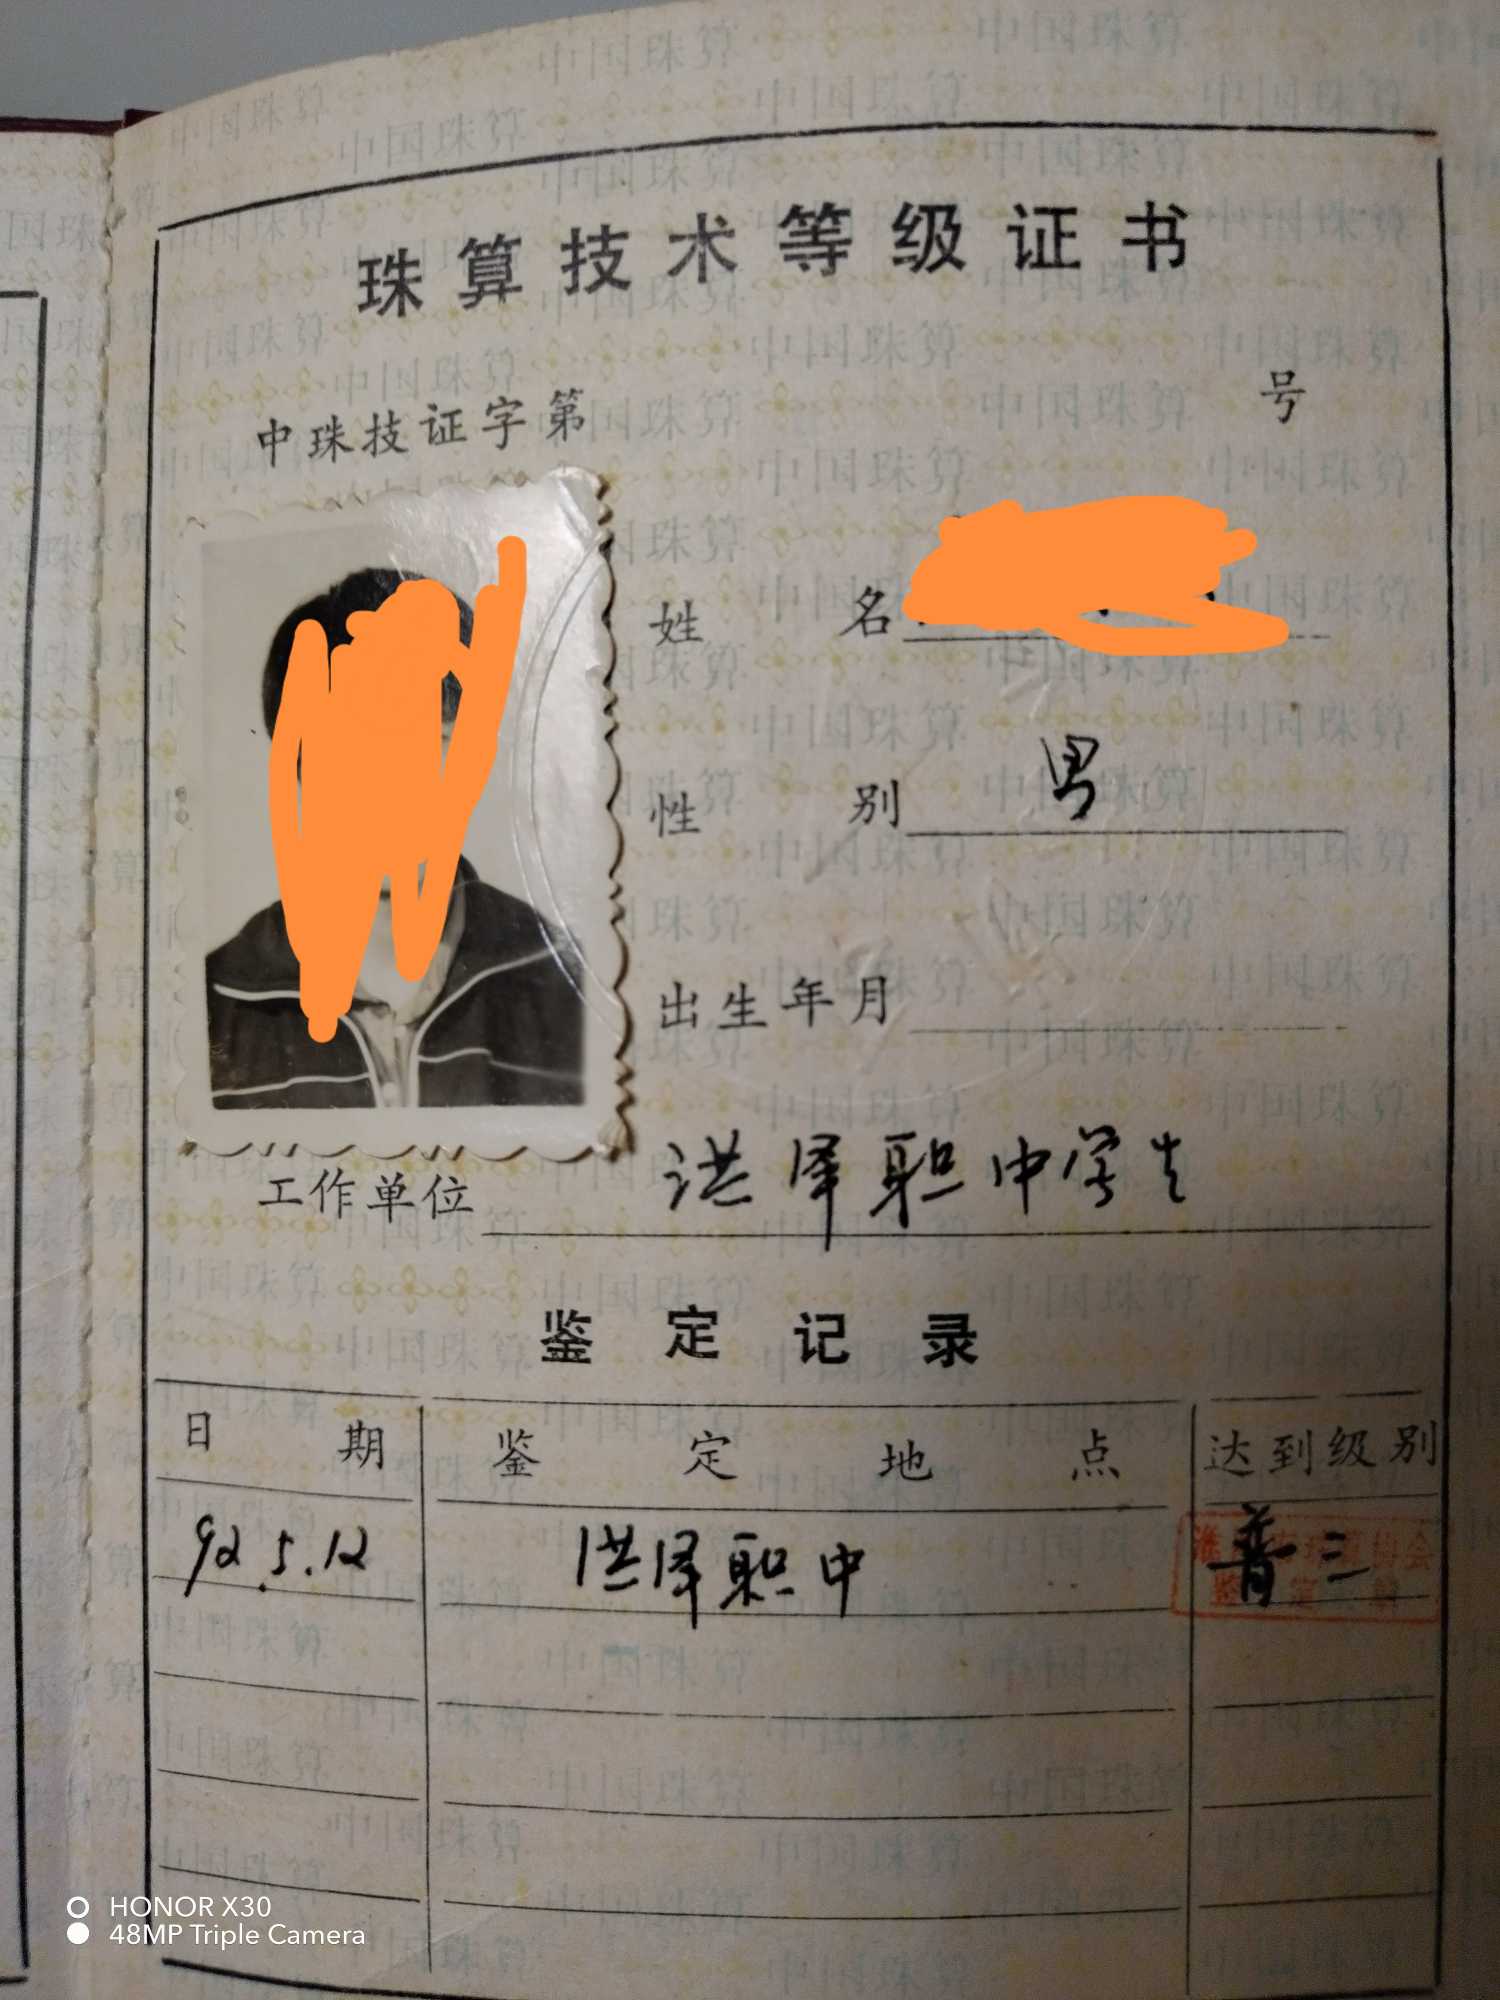 珠算技术等级证书
中珠技证字第 号
姓 名
性 别 男
出生年月
工作单位 洪泽职中学生
鉴定记录
日 期 鉴 定 地 点 达到级别
92.5.12 洪泽职中 普三
HONOR X30
48MP Triple Camera